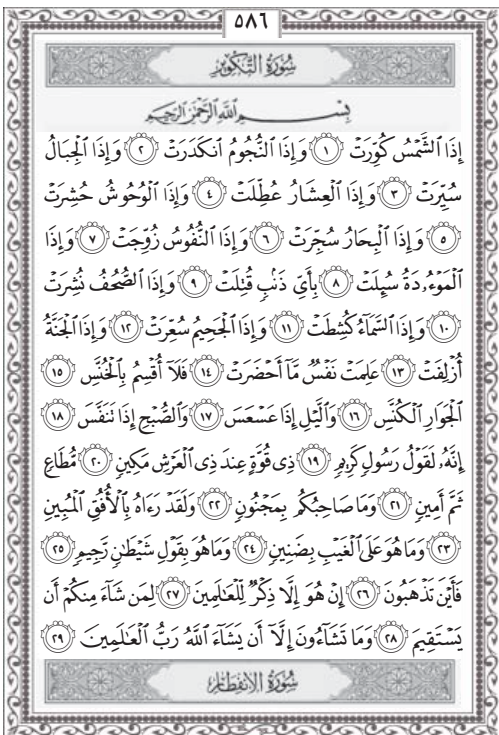 ٥٨٦
سُورَةُ التَّكْوِيرِ
بِسْمِ اللَّهِ الرَّحْمَٰنِ الرَّحِيمِ
إِذَا ٱلشَّمْسُ كُوِّرَتْ ١ وَإِذَا ٱلنُّجُومُ ٱنكَدَرَتْ ٢ وَإِذَا ٱلْجِبَالُ
سُيِّرَتْ ٣ وَإِذَا ٱلْعِشَارُ عُطِّلَتْ ٤ وَإِذَا ٱلْوُحُوشُ حُشِرَتْ
٥ وَإِذَا ٱلْبِحَارُ سُجِّرَتْ ٦ وَإِذَا ٱلنُّفُوسُ زُوِّجَتْ ٧ وَإِذَا
ٱلْمَوْءُۥدَةُ سُئِلَتْ ٨ بِأَىِّ ذَنۢبٍ قُتِلَتْ ٩ وَإِذَا ٱلصُّحُفُ نُشِرَتْ
١٠ وَإِذَا ٱلسَّمَآءُ كُشِطَتْ ١١ وَإِذَا ٱلْجَحِيمُ سُعِّرَتْ ١٢ وَإِذَا ٱلْجَنَّةُ
أُزْلِفَتْ ١٣ عَلِمَتْ نَفْسٌ مَّآ أَحْضَرَتْ ١٤ فَلَآ أُقْسِمُ بِٱلْخُنَّسِ ١٥
ٱلْجَوَارِ ٱلْكُنَّسِ ١٦ وَٱلَّيْلِ إِذَا عَسْعَسَ ١٧ وَٱلصُّبْحِ إِذَا تَنَفَّسَ ١٨
إِنَّهُۥ لَقَوْلُ رَسُولٍ كَرِيمٍ ١٩ ذِى قُوَّةٍ عِندَ ذِى ٱلْعَرْشِ مَكِينٍ ٢٠ مُّطَاعٍ
ثَمَّ أَمِينٍ ٢١ وَمَا صَاحِبُكُم بِمَجْنُونٍ ٢٢ وَلَقَدْ رَءَاهُ بِٱلْأُفُقِ ٱلْمُبِينِ
٢٣ وَمَا هُوَ عَلَى ٱلْغَيْبِ بِضَنِينٍ ٢٤ وَمَا هُوَ بِقَوْلِ شَيْطَٰنٍ رَّجِيمٍ ٢٥
فَأَيْنَ تَذْهَبُونَ ٢٦ إِنْ هُوَ إِلَّا ذِكْرٌ لِّلْعَٰلَمِينَ ٢٧ لِمَن شَآءَ مِنكُمْ أَن
يَسْتَقِيمَ ٢٨ وَمَا تَشَآءُونَ إِلَّآ أَن يَشَآءَ ٱللَّهُ رَبُّ ٱلْعَٰلَمِينَ ٢٩
سُورَةُ الانفِطَارِ